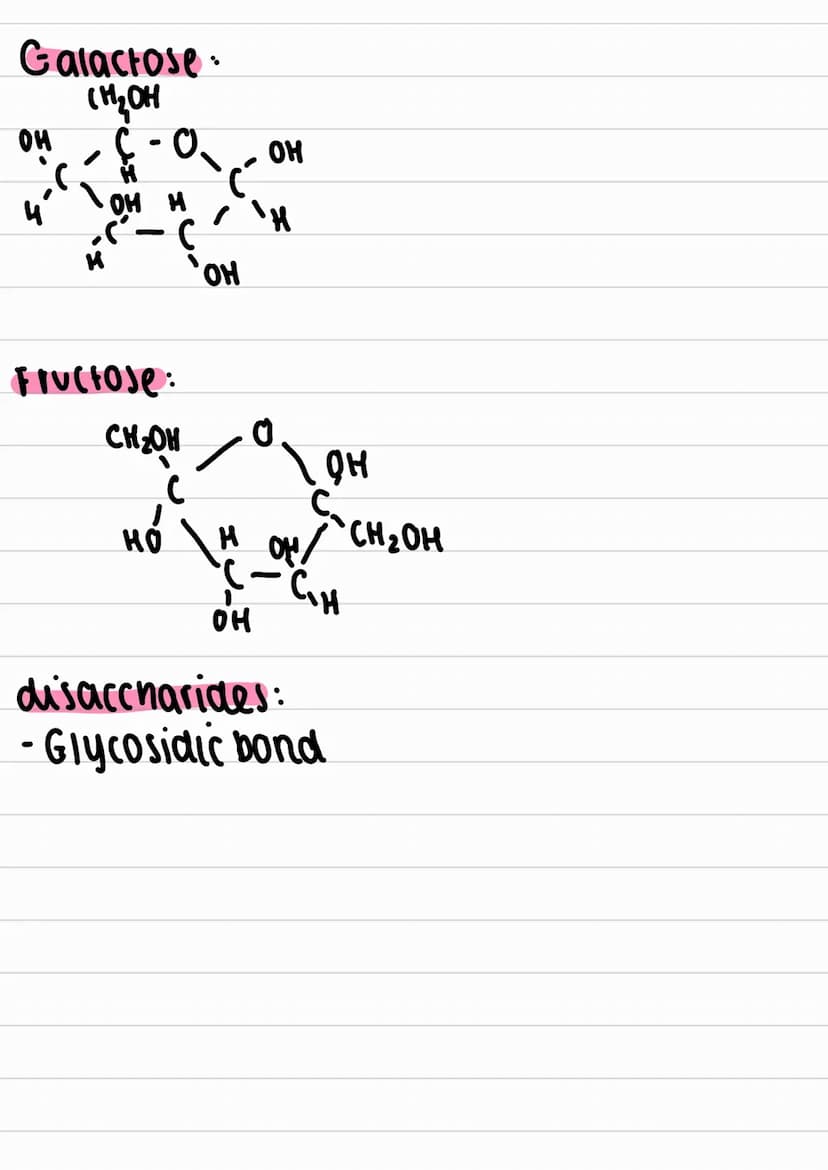 Galactose:
CH₂OH
OH C - O OH
C H C
H OH H H
C - C
H OH
Fructose:
CH₂OH O
OH
C C
HO H OH CH₂OH
C - C
H
OH
disaccharides:
- Glycosidic bond